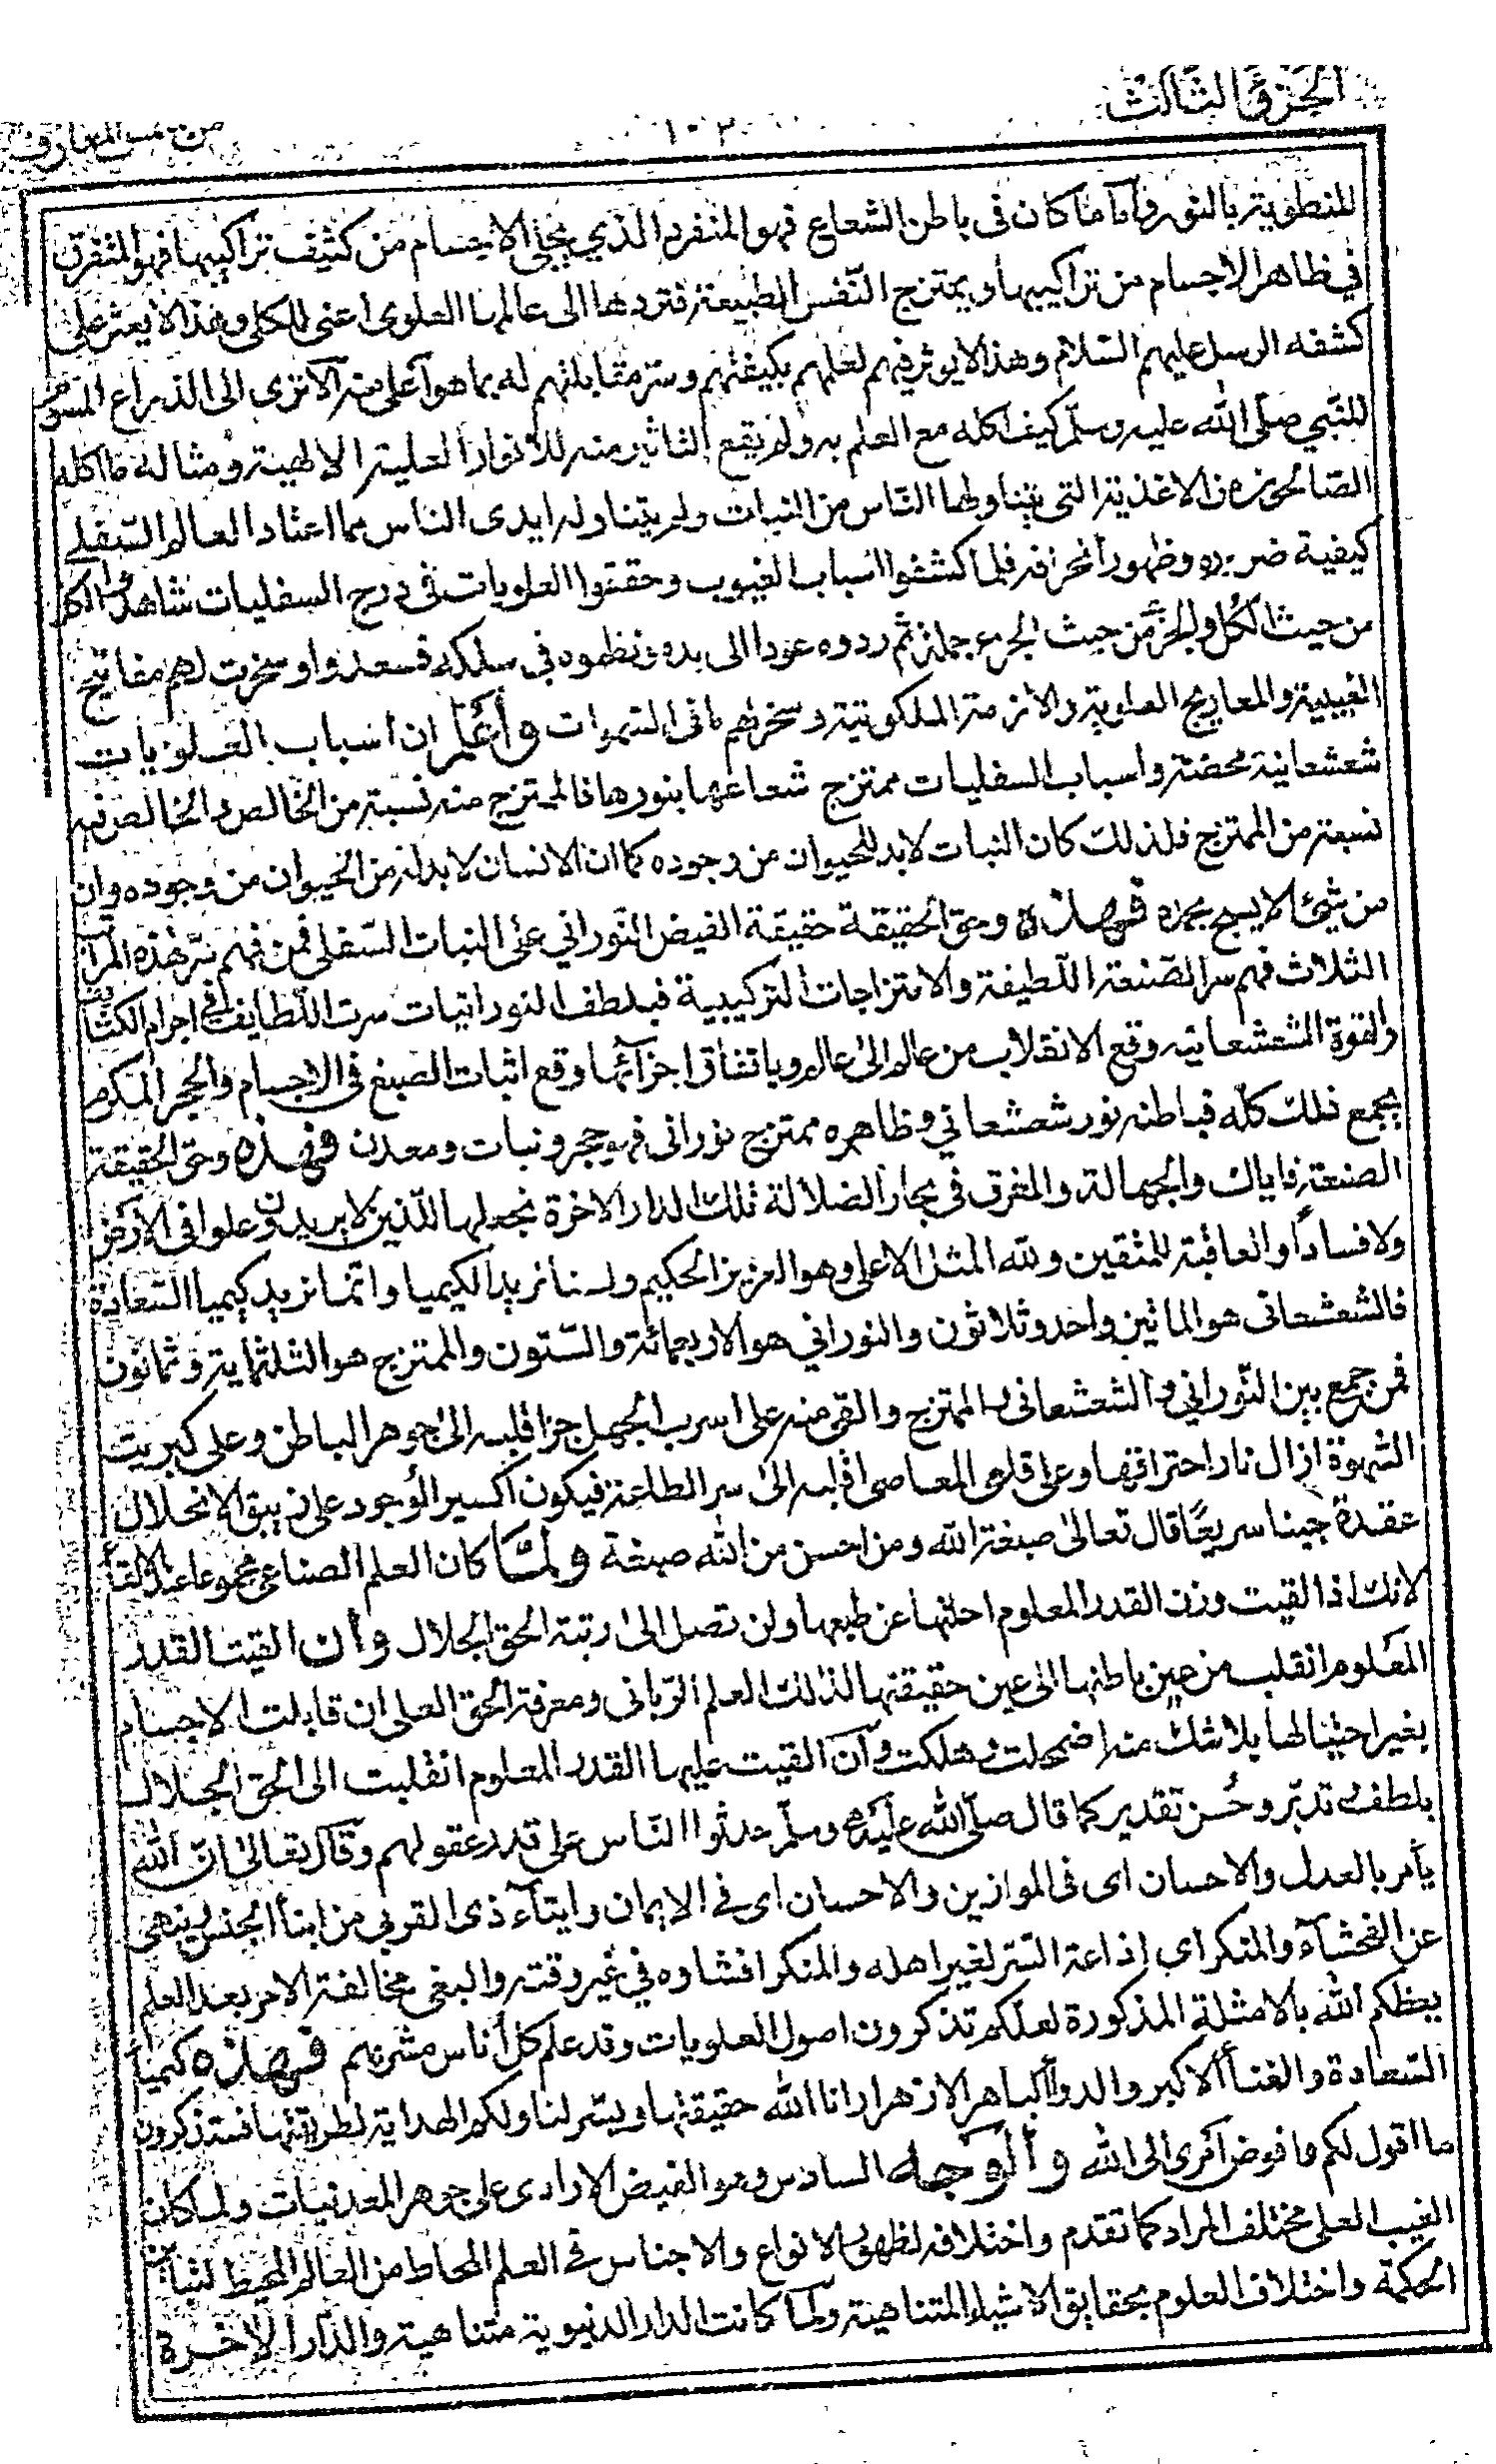 الجزؤ الثالث
١٠٣
من شمس المعارف
للنطوية بالنور وأما ما كان في باطن الشعاع فهو المنفرد الذي يجلي الاجسام من كثيف تراكيبها فهو المنفرق
في ظاهر الاجسام من تراكيبها ويمتزج النفس الطبيعة فتردها الى عالمها العلوى اعنى الكلى وهذا لا يعثر على
كشفه الرسل عليهم السّلام وهذا لا يوثر فيهم لعلمهم بكيفيتهم وسر مقابلتهم له بما هو أعلى منه ألا ترى الى الذراع المسموم
للنّبي صلّى اللّه عليه وسلّم كيف اكله مع العلم به ولم يقع التاثير منه للأنوار العلية الالهية ومثاله ما اكله
الصّالحون من الاغذية التى يتناولها النّاس من النبات ولم يتناوله ايدى الناس مما اعتاد العالم السّفلي
كيفية ضرره وظهور انحرافه فلما كشفوا اسباب الغيوب وحققوا العلويات في درج السفليات شاهدوا الكل
من حيث الكل والجزء من حيث الجزء جملة ثم ردوه عودا الى بدء ونظموه في سلكه فسعدوا وسخرت لهم مفاتيح
الغيبية والمعاريج العلوية والازمة الملكوتية وسخر لهم ما في السّموات وأعلم ان اسباب العلويات
شعشعانية محضة واسباب السفليات ممتزج شعاعها بنورها فالممتزج منه نسبة من الخالص والخالص فيه
نسبة من الممتزج فلذلك كان النبات لابد للحيوان من وجوده كما ان الانسان لابد له من الحيوان من وجوده وان
من شئ الا يسبح بحمده فهذه وحق الحقيقة حقيقة الفيض النّوراني على النبات السّفلي فمن فهم سرّ هذه المراتب
الثلاث فهم سر الصّنعة اللّطيفة والامتزاجات التركيبية فبلطف النورانيات سرت اللّطايف في اجرام الكثايف
والقوة الشعشعانيه وقع الانقلاب من عالم الى عالم وباتفاق اجزآئها وقع اثبات الصبغ في الاجسام والحجر المكرم
يجمع ذلك كلّه فباطنه نور شعشعاني وظاهره ممتزج نوراني فهو حجر ونبات ومعدن فهذه وحق الحقيقة
الصنعة فاياك والجهالة والغرق في بحار الضلالة تلك الدار الاخرة نجعلها للّذين لا يريدون علوا في الأرض
ولا فسادا والعاقبة للمتقين وللّه المثل الاعلى وهو العزيز الحكيم ولسنا نريد الكيميا وانما نريد كيميا السّعادة
فالشعشعانى هو الماثين واحد وثلاثون والنوراني هو الاربعمائة والسّتون والممتزج هو الثلثماية وثمانون
فمن جمع بين النّوراني والشعشعانى والممتزج والقى منه على اسرب الجهل جزا قلبه الى جوهر الباطن وعلى كبريت
الشهوة ازال نار احتراقها وعلى قلعى المعاصى اقلبه الى سر الطاعة فيكون اكسير الوجود على ان يبق الانحلال
عقده حينا سريعًا قال تعالى صبغة اللّه ومن احسن من اللّه صبغة ولمّا كان العلم الصناعي مجموعا عند الالقاء
لانك اذا القيت وزن القدر المعلوم احلتها عن طبعها ولن تصل الى رتبة الحق الجلال وأن القيت القدر
المعلوم انقلب من حين باطنها الى عين حقيقتها لذلك العلم الرّبانى ومعرفة الحق العلى ان قابلت الاجسام
بغير احثنا لها بلا شك منه اضمحلت وهلكت وأن القيت عليها القدر المعلوم انقلبت الى الحق الجلال
بلطف تدبّر وحُسن تقدير كما قال صلّى اللّه عليه وسلّم حدثوا النّاس على قدر عقولهم وقال تعالى انّ اللّه
يأمر بالعدل والاحسان اى فى الموازين والاحسان اى في الايمان وايتآء ذى القربى من ابنأ الجنس وينهى
عن الفحشآء والمنكر اى اذاعة السّر لغير اهله والمنكر افشاوه في غير وقته والبغى مخالفة الامر بعد العلم
يعظكم اللّه بالامثلة المذكورة لعلكم تذكرون اصول العلويات وقد علم كل أناس مشربهم فهذه كيمياء
السّعادة والغنأ الاكبر والدوأ الباهر الازهر ارانا اللّه حقيقتها ويسّر لنا ولكم الهداية لطريقتها فستذكرون
ما اقول لكم وافوض أمرى الى اللّه وألوجه السادس وهو الفيض الارادى على جوهر المعدنيات ولما كان
الغيب العلى مختلف المراد كما تقدم واختلافه لظهور الانواع والاجناس في العلم المحاط من العالم المحيط لتباين
الحكمة واختلاف العلوم بحقايق الاشياء المتناهية ولما كانت الدار الدنيوية متناهية والدّار الاخرة